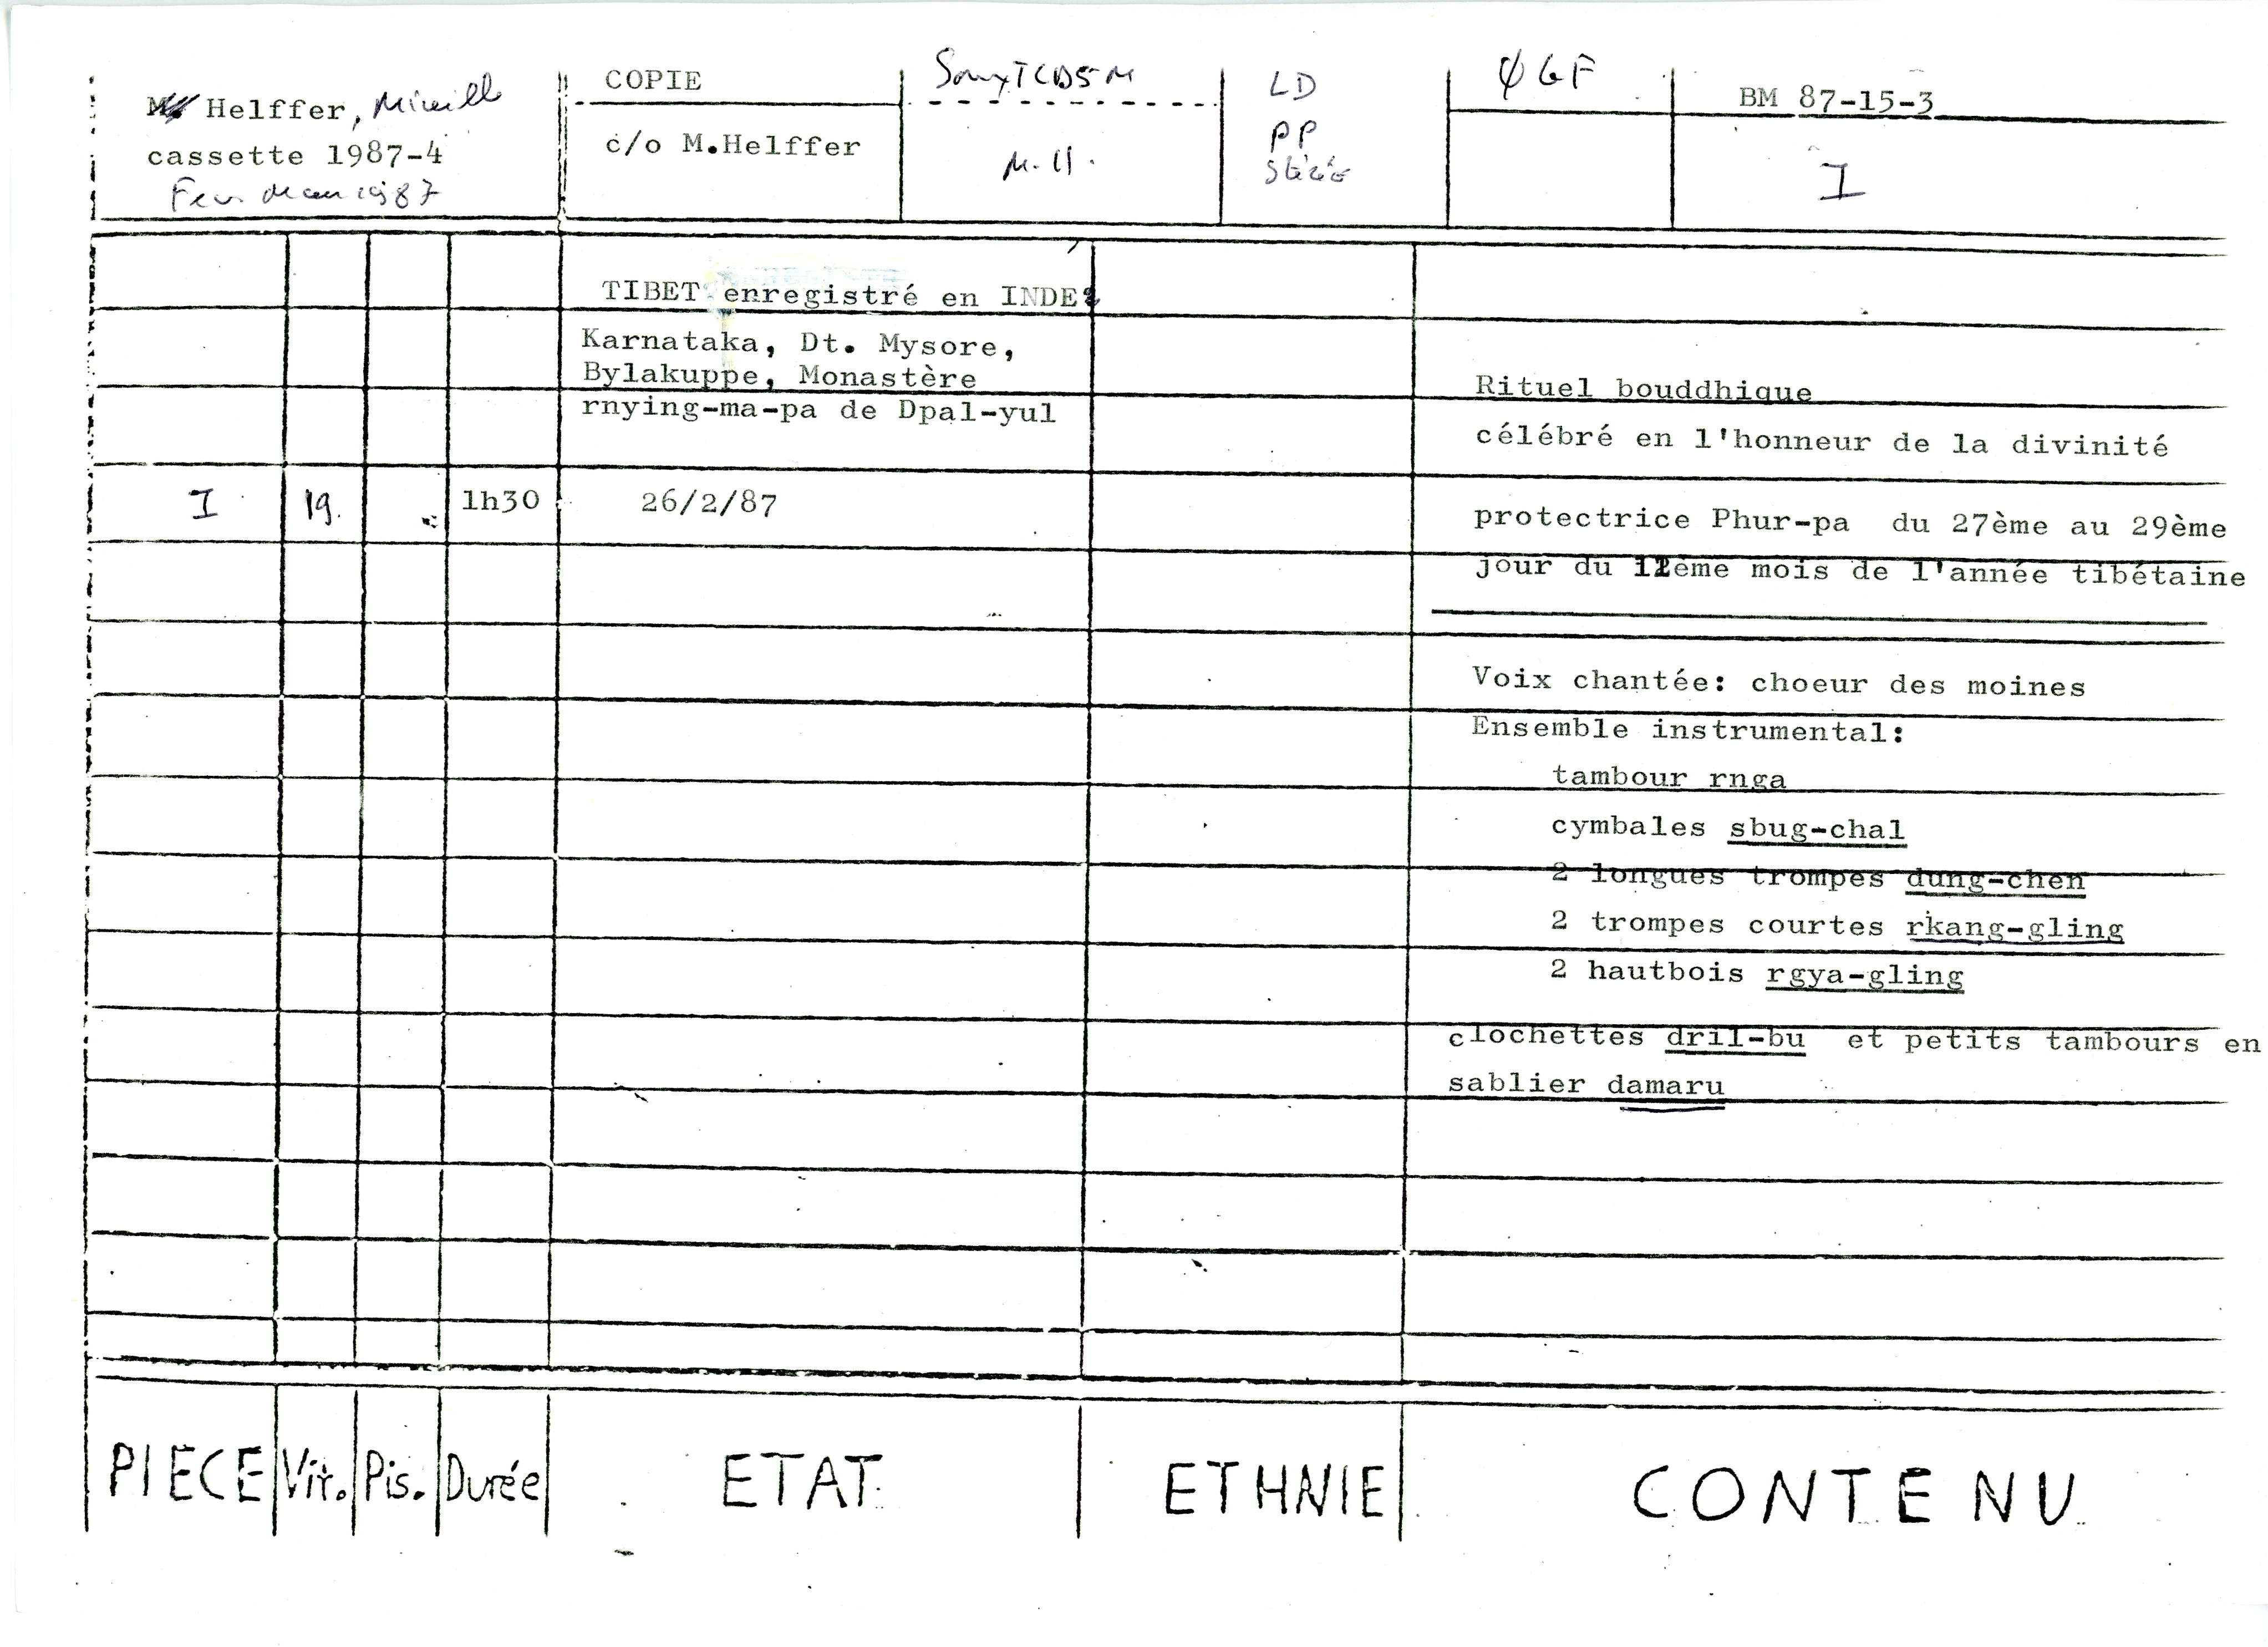 Helffer, Mireille
cassette 1987-4
1987
COPIE
c/o M.Helffer
Sony TCD5M
M.H.
LD
PP
Stéréo
GF
BM 87-15-3
I
TIBET enregistré en INDE
Karnataka, Dt. Mysore,
Bylakuppe, Monastère
rnying-ma-pa de Dpal-yul
I 19. 1h30 26/2/87
Rituel bouddhique
célébré en l'honneur de la divinité
protectrice Phur-pa du 27ème au 29ème
jour du mois de l'année tibétaine
Voix chantée: choeur des moines
Ensemble instrumental:
tambour rnga
cymbales sbug-chal
2 longues trompes dung-chen
2 trompes courtes rkang-gling
2 hautbois rgya-gling
clochettes dril-bu et petits tambours en
sablier damaru
PIECE Vit. Pis. Durée ETAT ETHNIE CONTENU